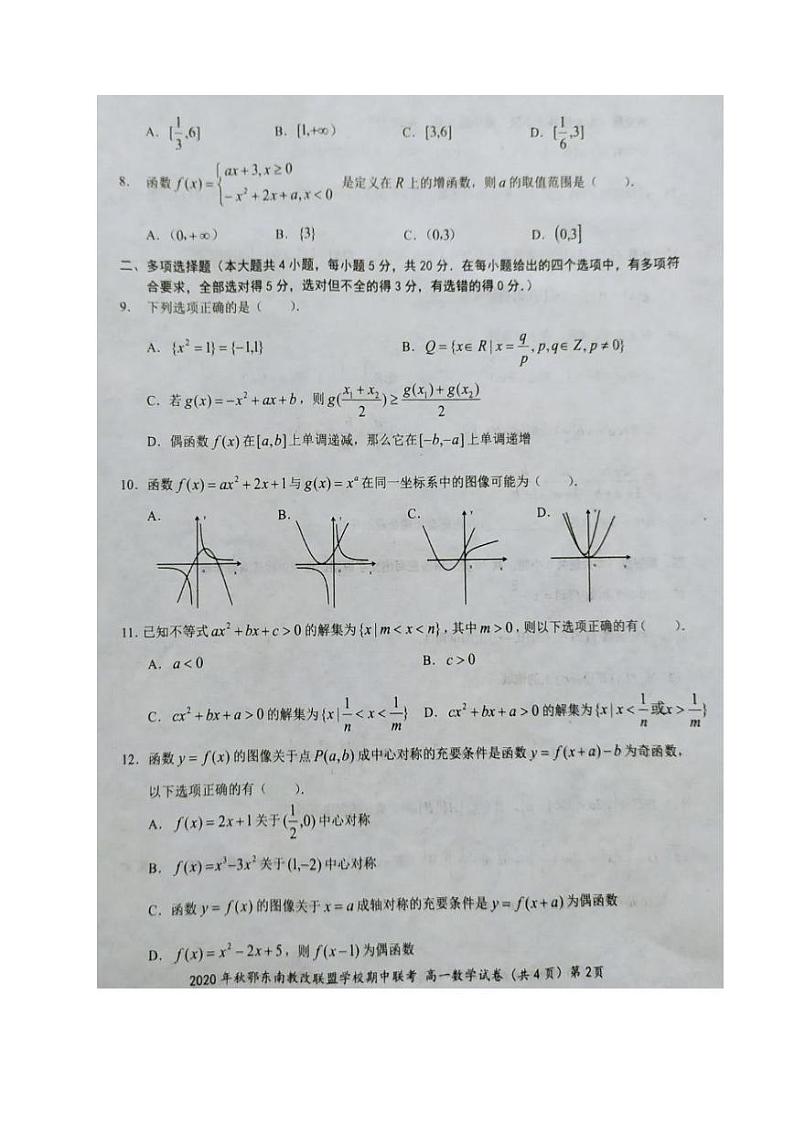 A. [1/3,6]  B. [1,+∞)  C. [3,6]  D. [1/6,3]
8. 函数 f(x)={ax+3,x≥0  -x²+2x+a,x<0 是定义在 R 上的增函数，则 a 的取值范围是（  ）.
A. (0,+∞)  B. {3}  C. (0,3)  D. (0,3]
二、多项选择题（本大题共 4 小题，每小题 5 分，共 20 分．在每小题给出的四个选项中，有多项符
合要求，全部选对得 5 分，选对但不全的得 3 分，有选错的得 0 分．）
9. 下列选项正确的是（  ）.
A. {x²=1}={-1,1}  B. Q={x∈R|x=q/p,p,q∈Z,p≠0}
C. 若 g(x)=-x²+ax+b，则 g((x₁+x₂)/2)≥(g(x₁)+g(x₂))/2
D. 偶函数 f(x) 在[a,b]上单调递减，那么它在[-b,-a]上单调递增
10. 函数 f(x)=ax²+2x+1 与 g(x)=xᵃ 在同一坐标系中的图像可能为（  ）.
A.  B.  C.  D.
11. 已知不等式 ax²+bx+c>0 的解集为{x|m<x<n}，其中 m>0，则以下选项正确的有（  ）.
A. a<0  B. c>0
C. cx²+bx+a>0 的解集为{x|1/n<x<1/m}  D. cx²+bx+a>0 的解集为{x|x<1/n或x>1/m}
12. 函数 y=f(x) 的图像关于点 P(a,b) 成中心对称的充要条件是函数 y=f(x+a)-b 为奇函数，
以下选项正确的有（  ）.
A. f(x)=2x+1 关于(1/2,0)中心对称
B. f(x)=x³-3x² 关于(1,-2)中心对称
C. 函数 y=f(x) 的图像关于 x=a 成轴对称的充要条件是 y=f(x+a) 为偶函数
D. f(x)=x²-2x+5，则 f(x-1) 为偶函数
2020 年秋鄂东南教改联盟学校期中联考 高一数学试卷（共 4 页）第 2 页